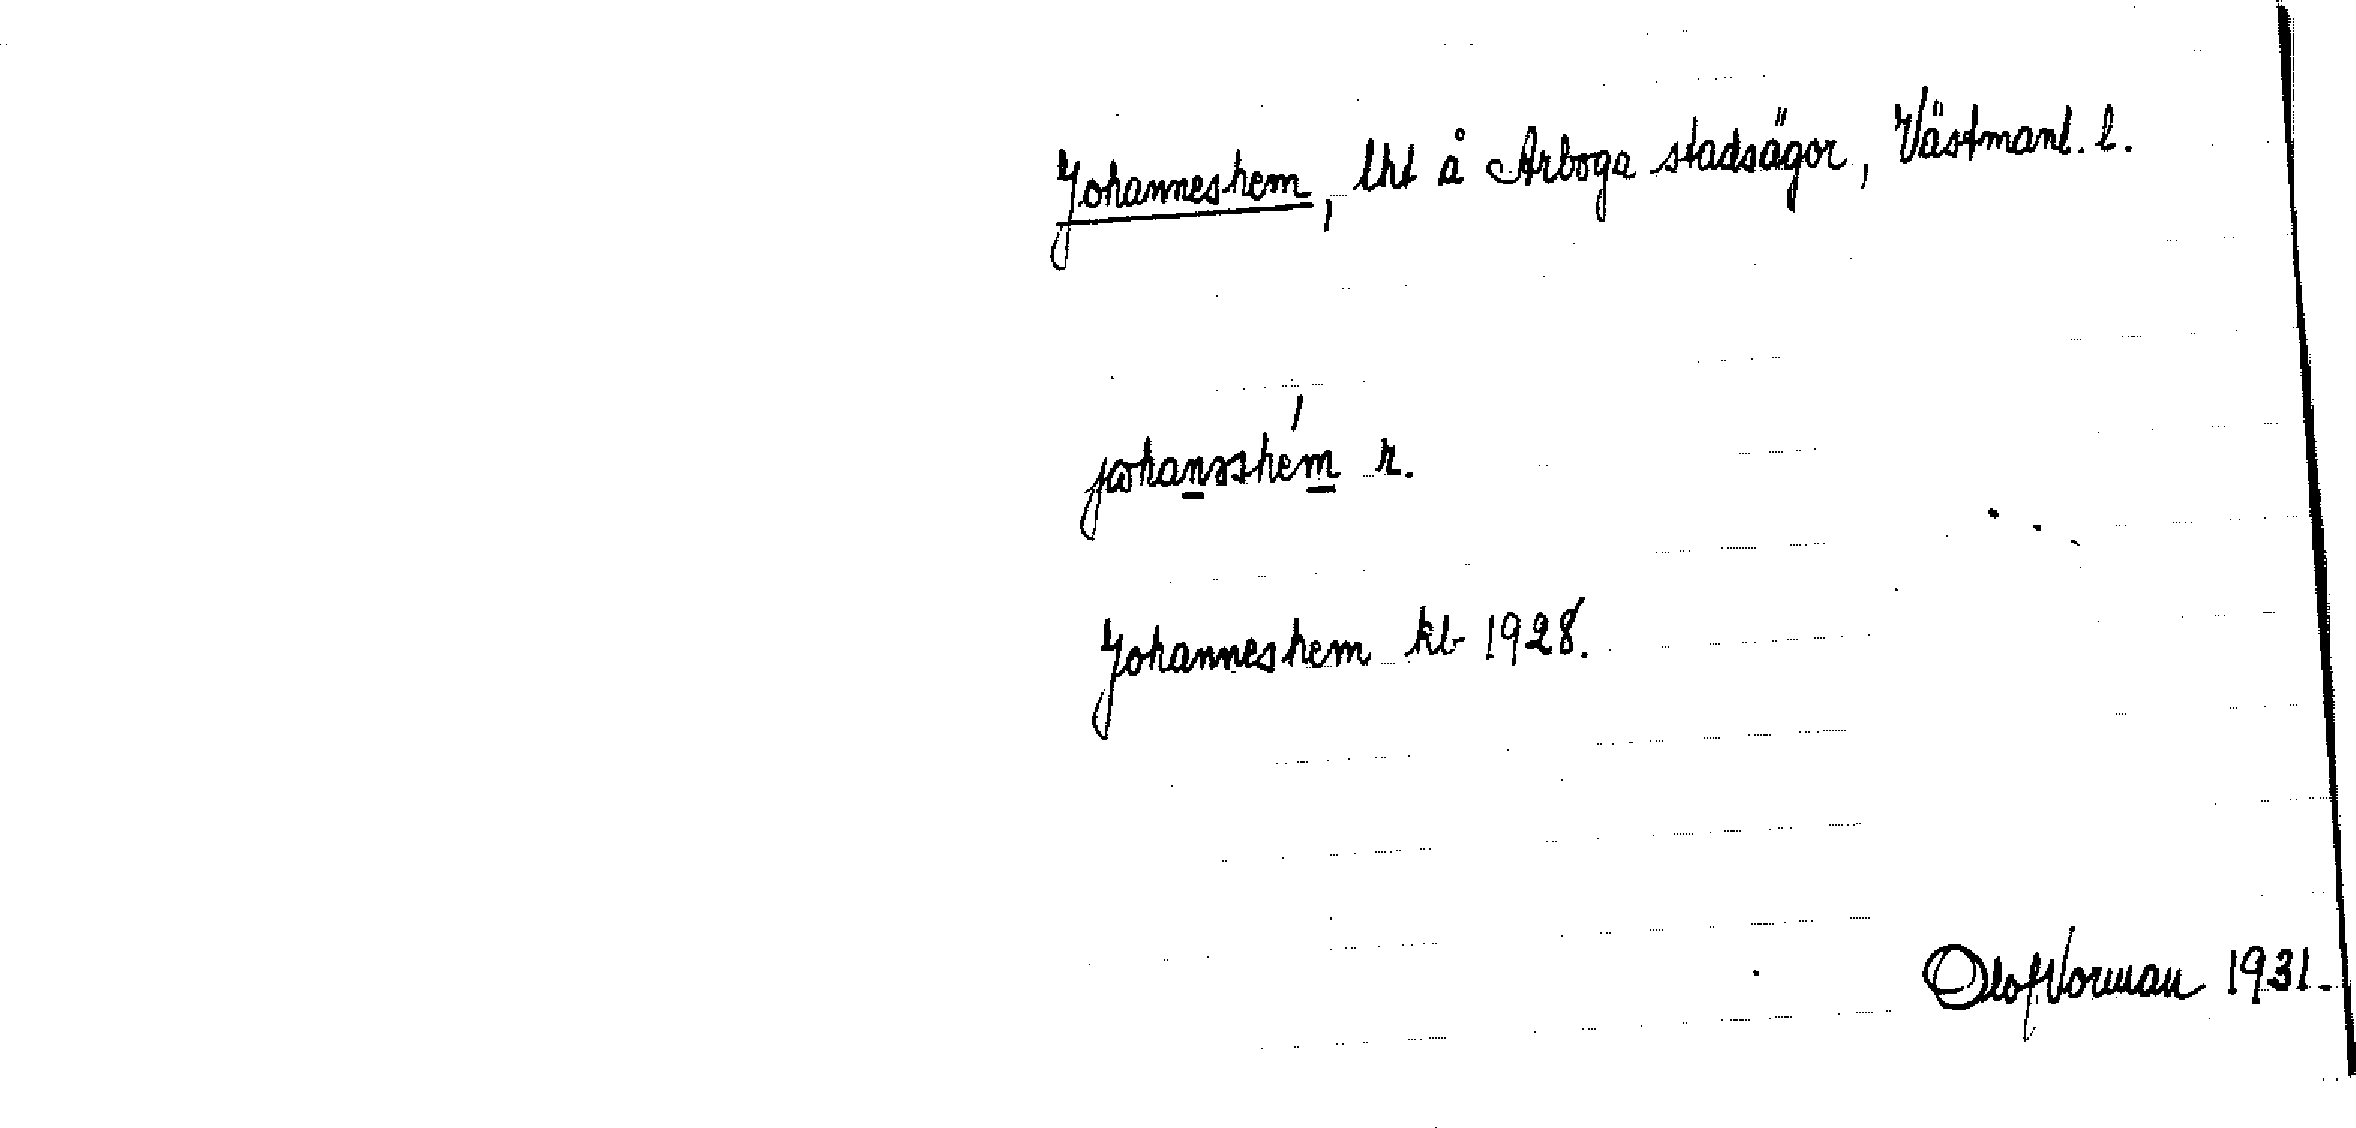 Johanneshem, lht å Arboga stadsägor, Västmanl. l.
johanəshem r.
Johanneshem kb 1928.
Olof Vorman 1931.